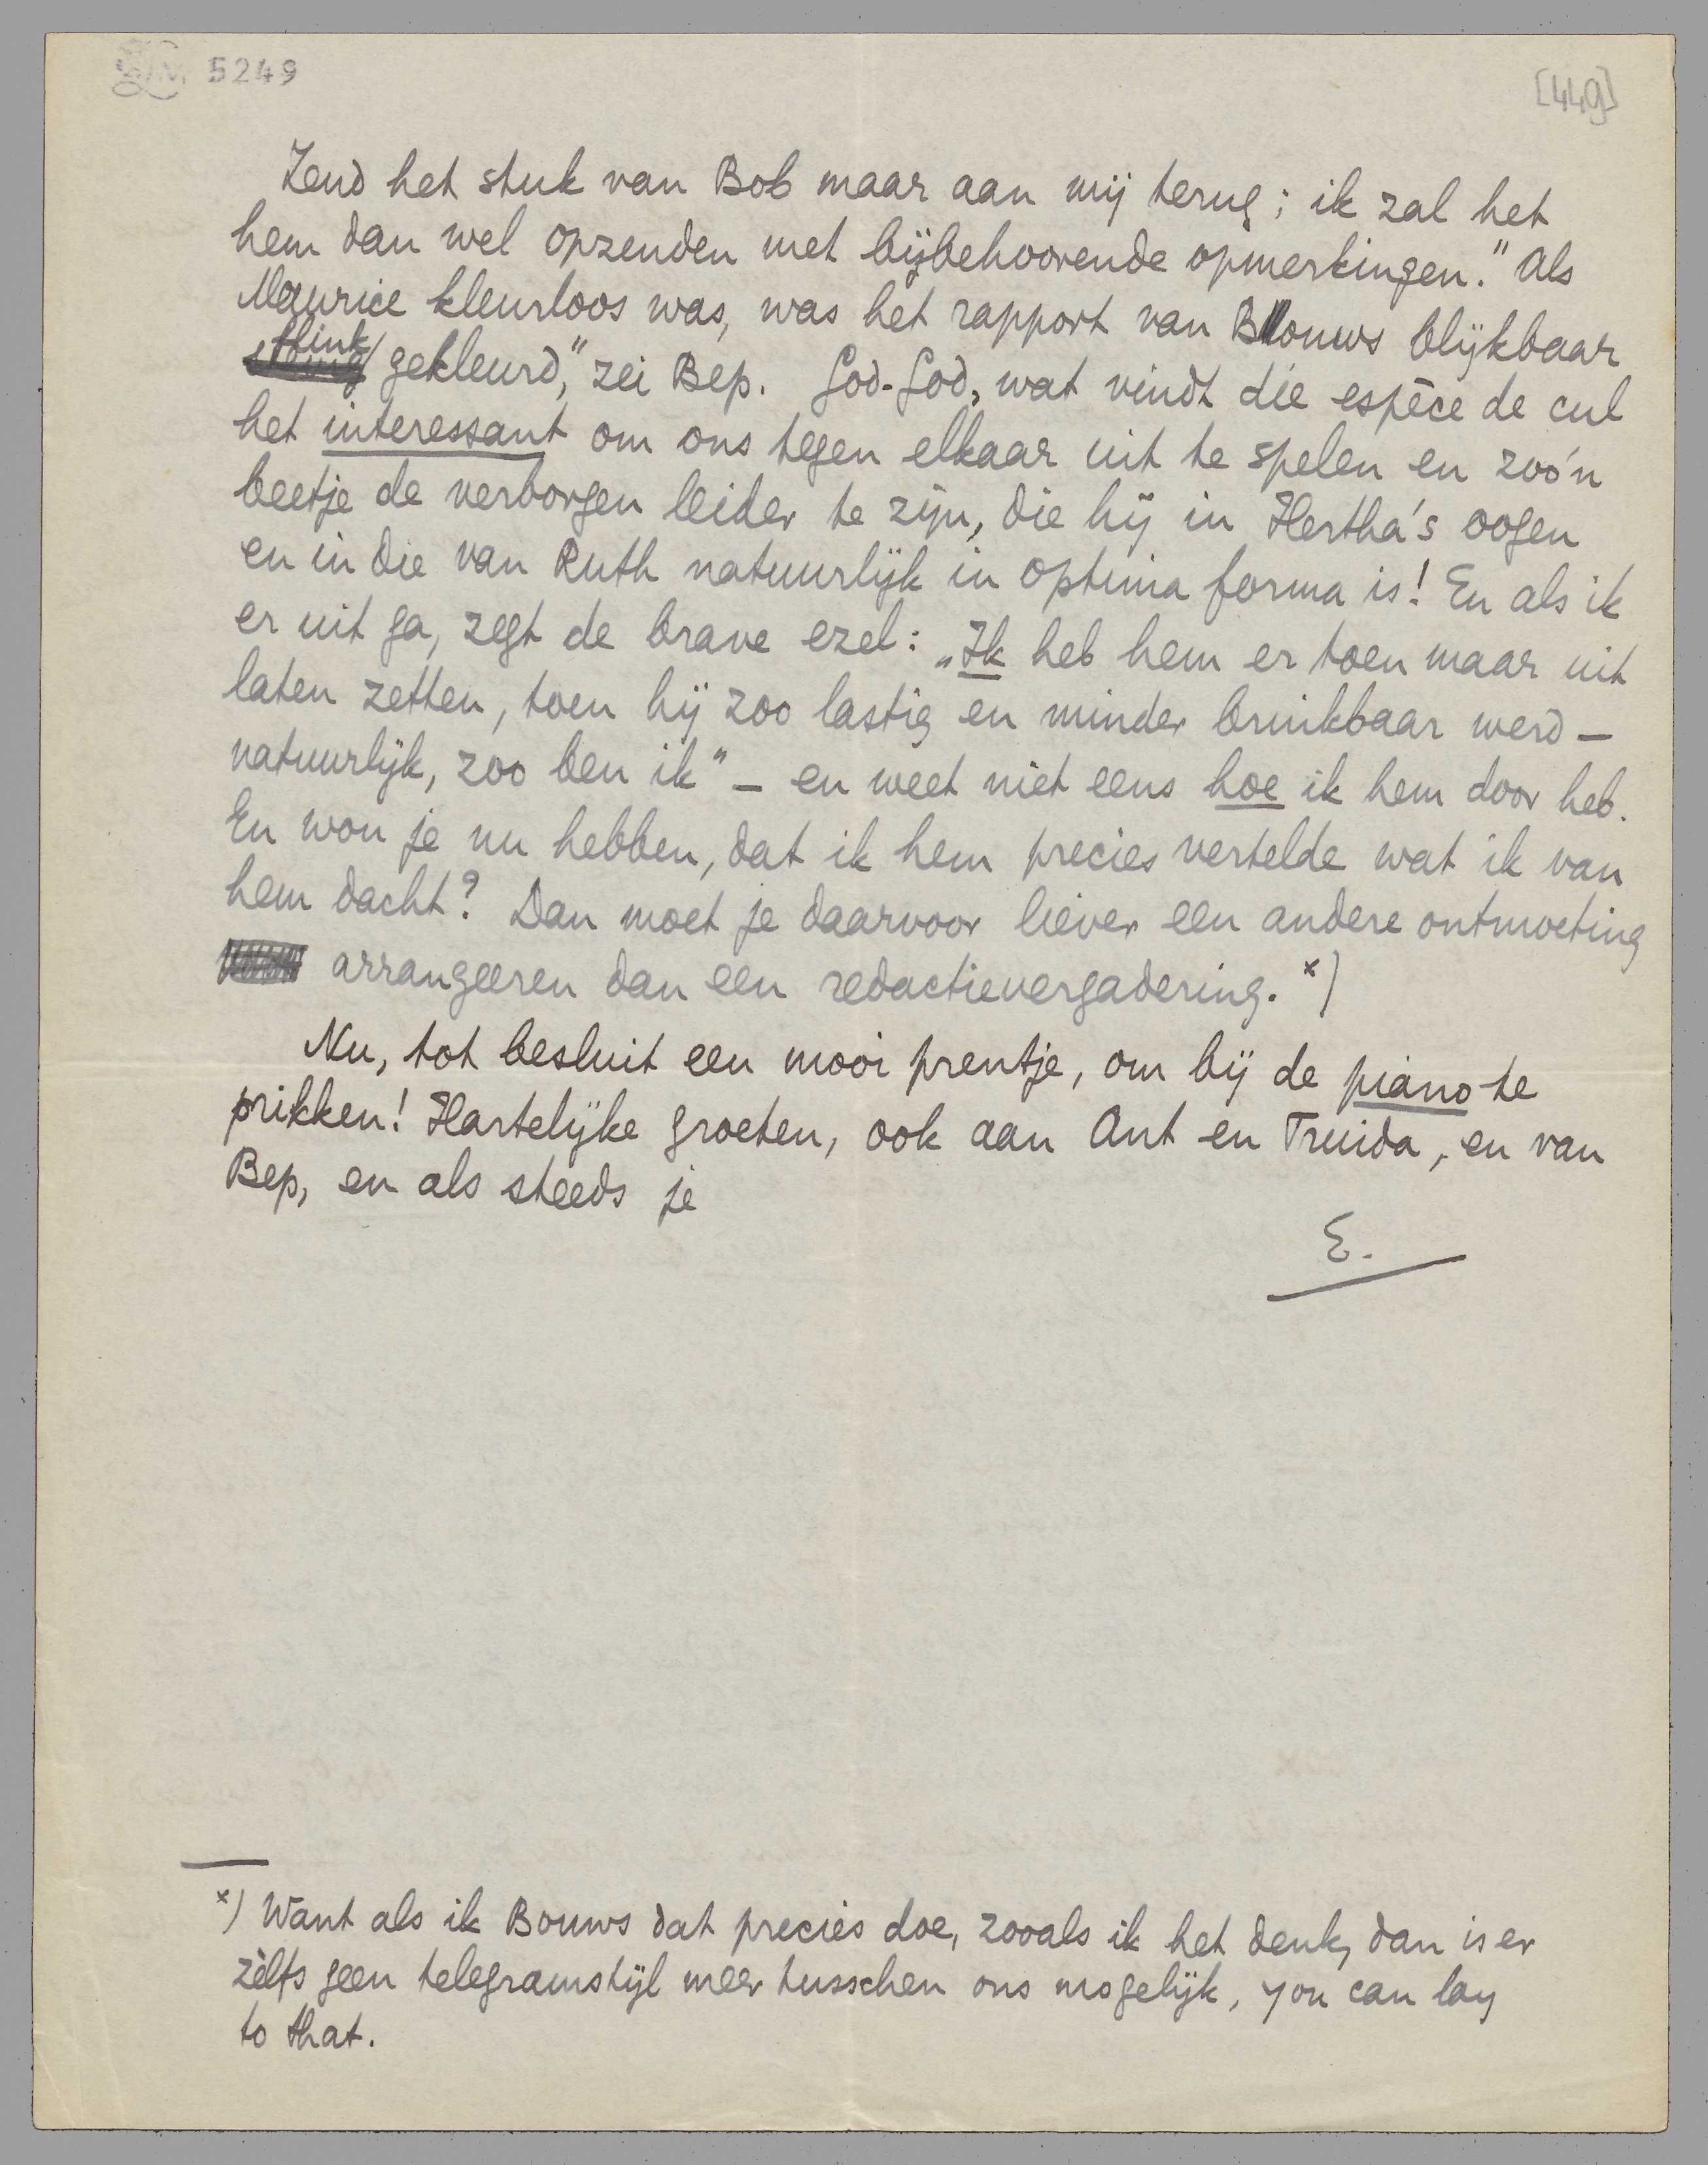 LM 5249
[449]
Zend het stuk van Bob maar aan mij terug; ik zal het
hem dan wel opzenden met bijbehoorende opmerkingen." Als
Maurice kleurloos was, was het rapport van Bouws blijkbaar
flink
gekleurd," zei Bep. God-God, wat vindt die espèce de cul
het interessant om ons tegen elkaar uit te spelen en zoo'n
beetje de verborgen leider te zijn, die hij in Hertha's oogen
en in die van Ruth natuurlijk in optima forma is! En als ik
er uit ga, zegt de brave ezel: „Ik heb hem er toen maar uit
laten zetten, toen hij zoo lastig en minder bruikbaar werd –
natuurlijk, zoo ben ik" – en weet niet eens hoe ik hem door heb.
En wou je nu hebben, dat ik hem precies vertelde wat ik van
hem dacht? Dan moet je daarvoor liever een andere ontmoeting
arrangeeren dan een redactievergadering. *)
Nu, tot besluit een mooi prentje, om bij de piano te
prikken! Hartelijke groeten, ook aan Ant en Truida, en van
Bep, en als steeds je
E.
*) Want als ik Bouws dat precies doe, zooals ik het denk, dan is er
zèlfs geen telegramstijl meer tusschen ons mogelijk, you can lay
to that.